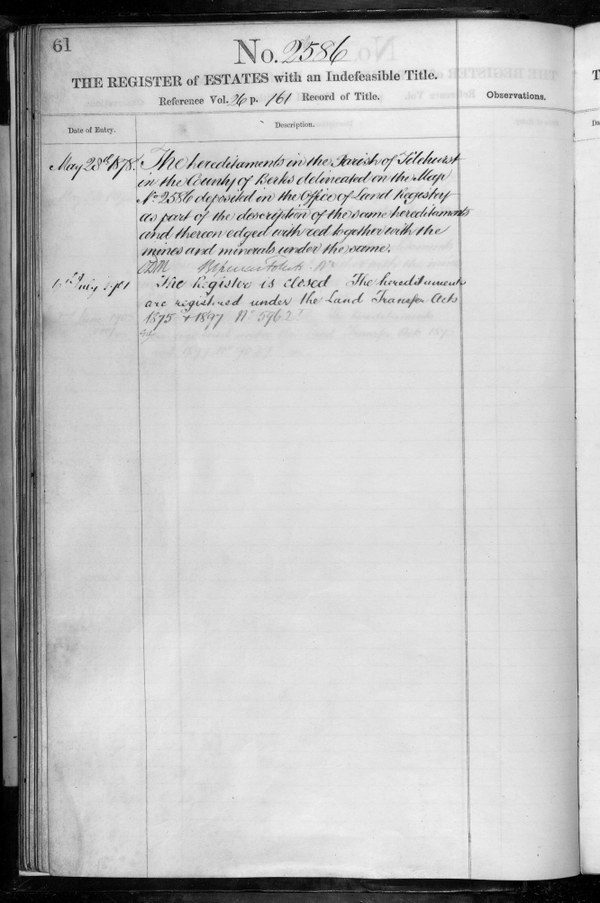 61
No. 2586
THE REGISTER of ESTATES with an Indefeasible Title.
Reference Vol. 26 p. 161 Record of Title.
Observations.
Date of Entry.
Description.
May 28th 1878. The hereditaments in the Parish of Tilehurst
in the County of Berks delineated on the Map
No 2586 deposited in the Office of Land Registry
as part of the description of the same hereditaments
and thereon edged with red together with the
mines and minerals under the same.
July 1901 The Register is closed The hereditaments
are registered under the Land Transfer Acts
1875 & 1897 No 5962